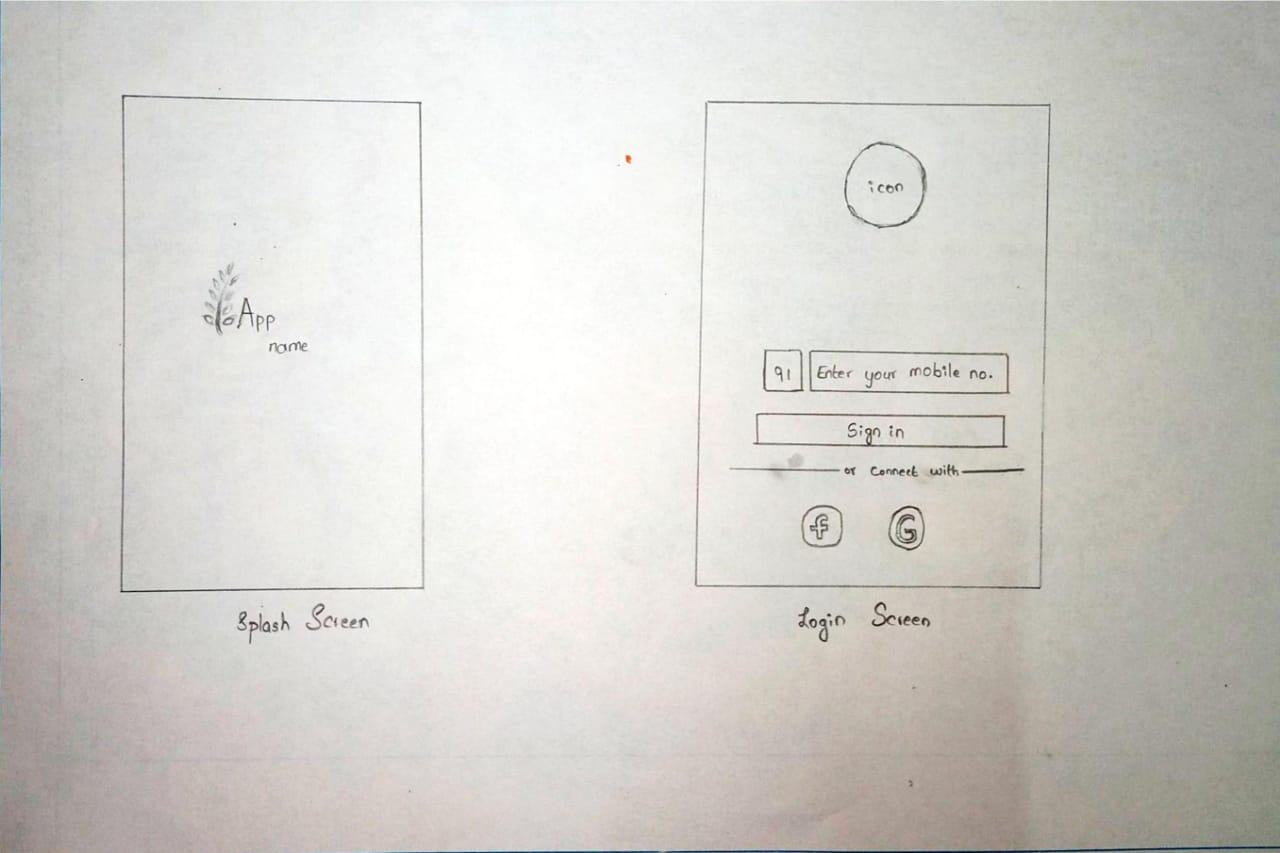 App
name
Splash Screen
icon
91 Enter your mobile no.
Sign in
or connect with
f G
Login Screen